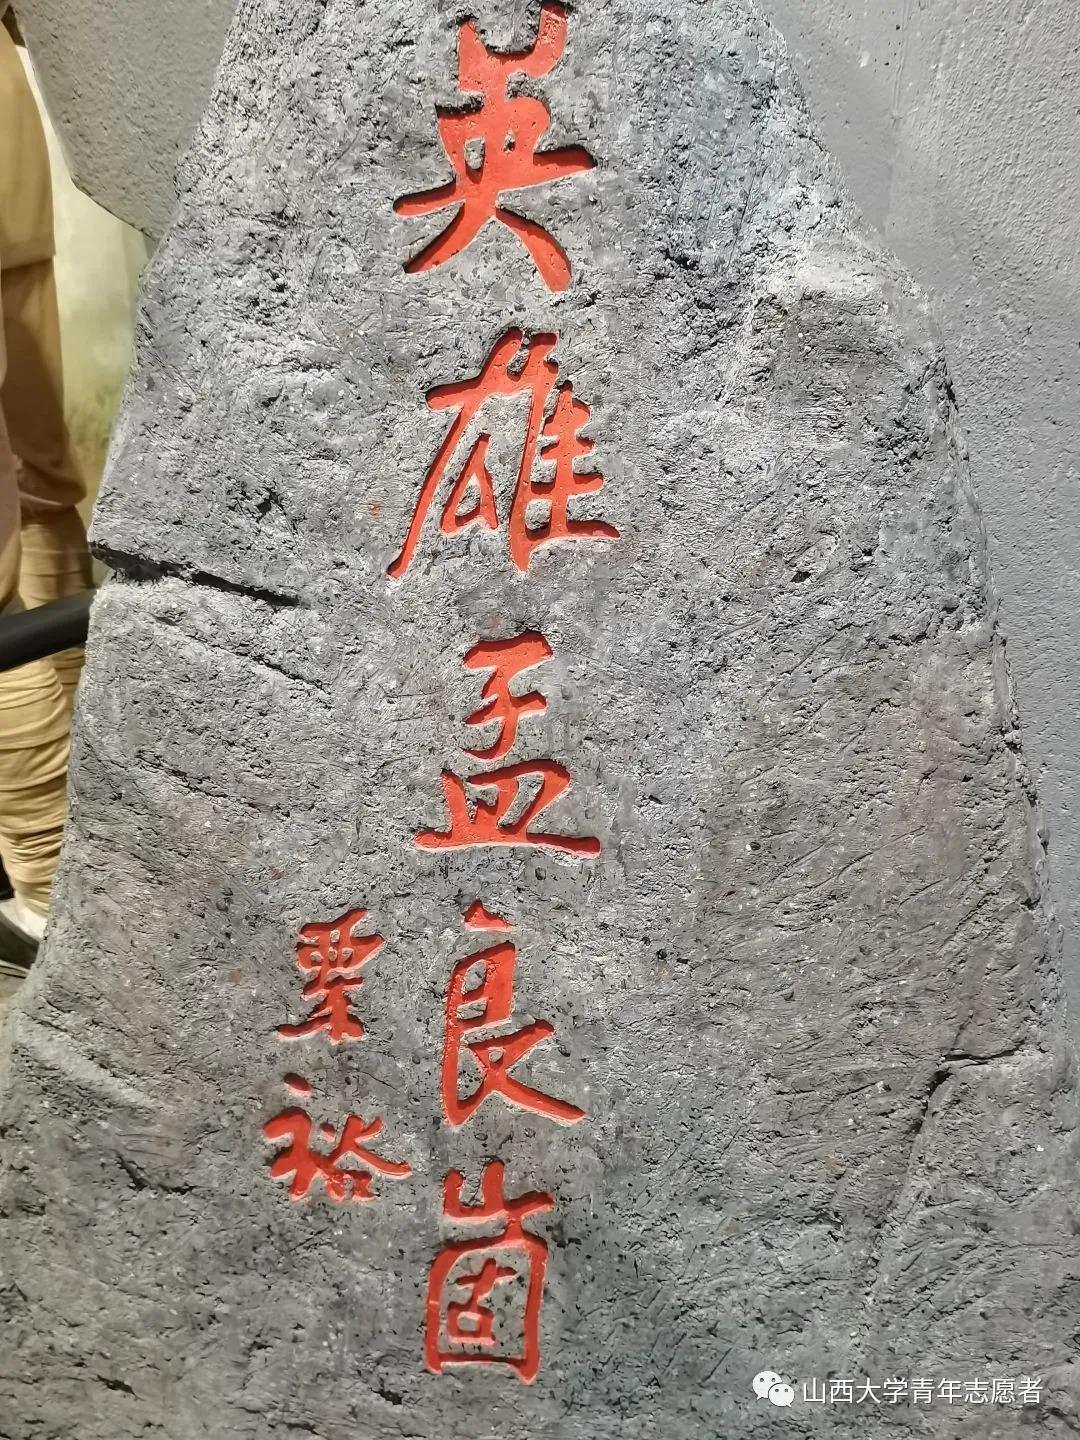 英雄孟良崮
粟裕
山西大学青年志愿者